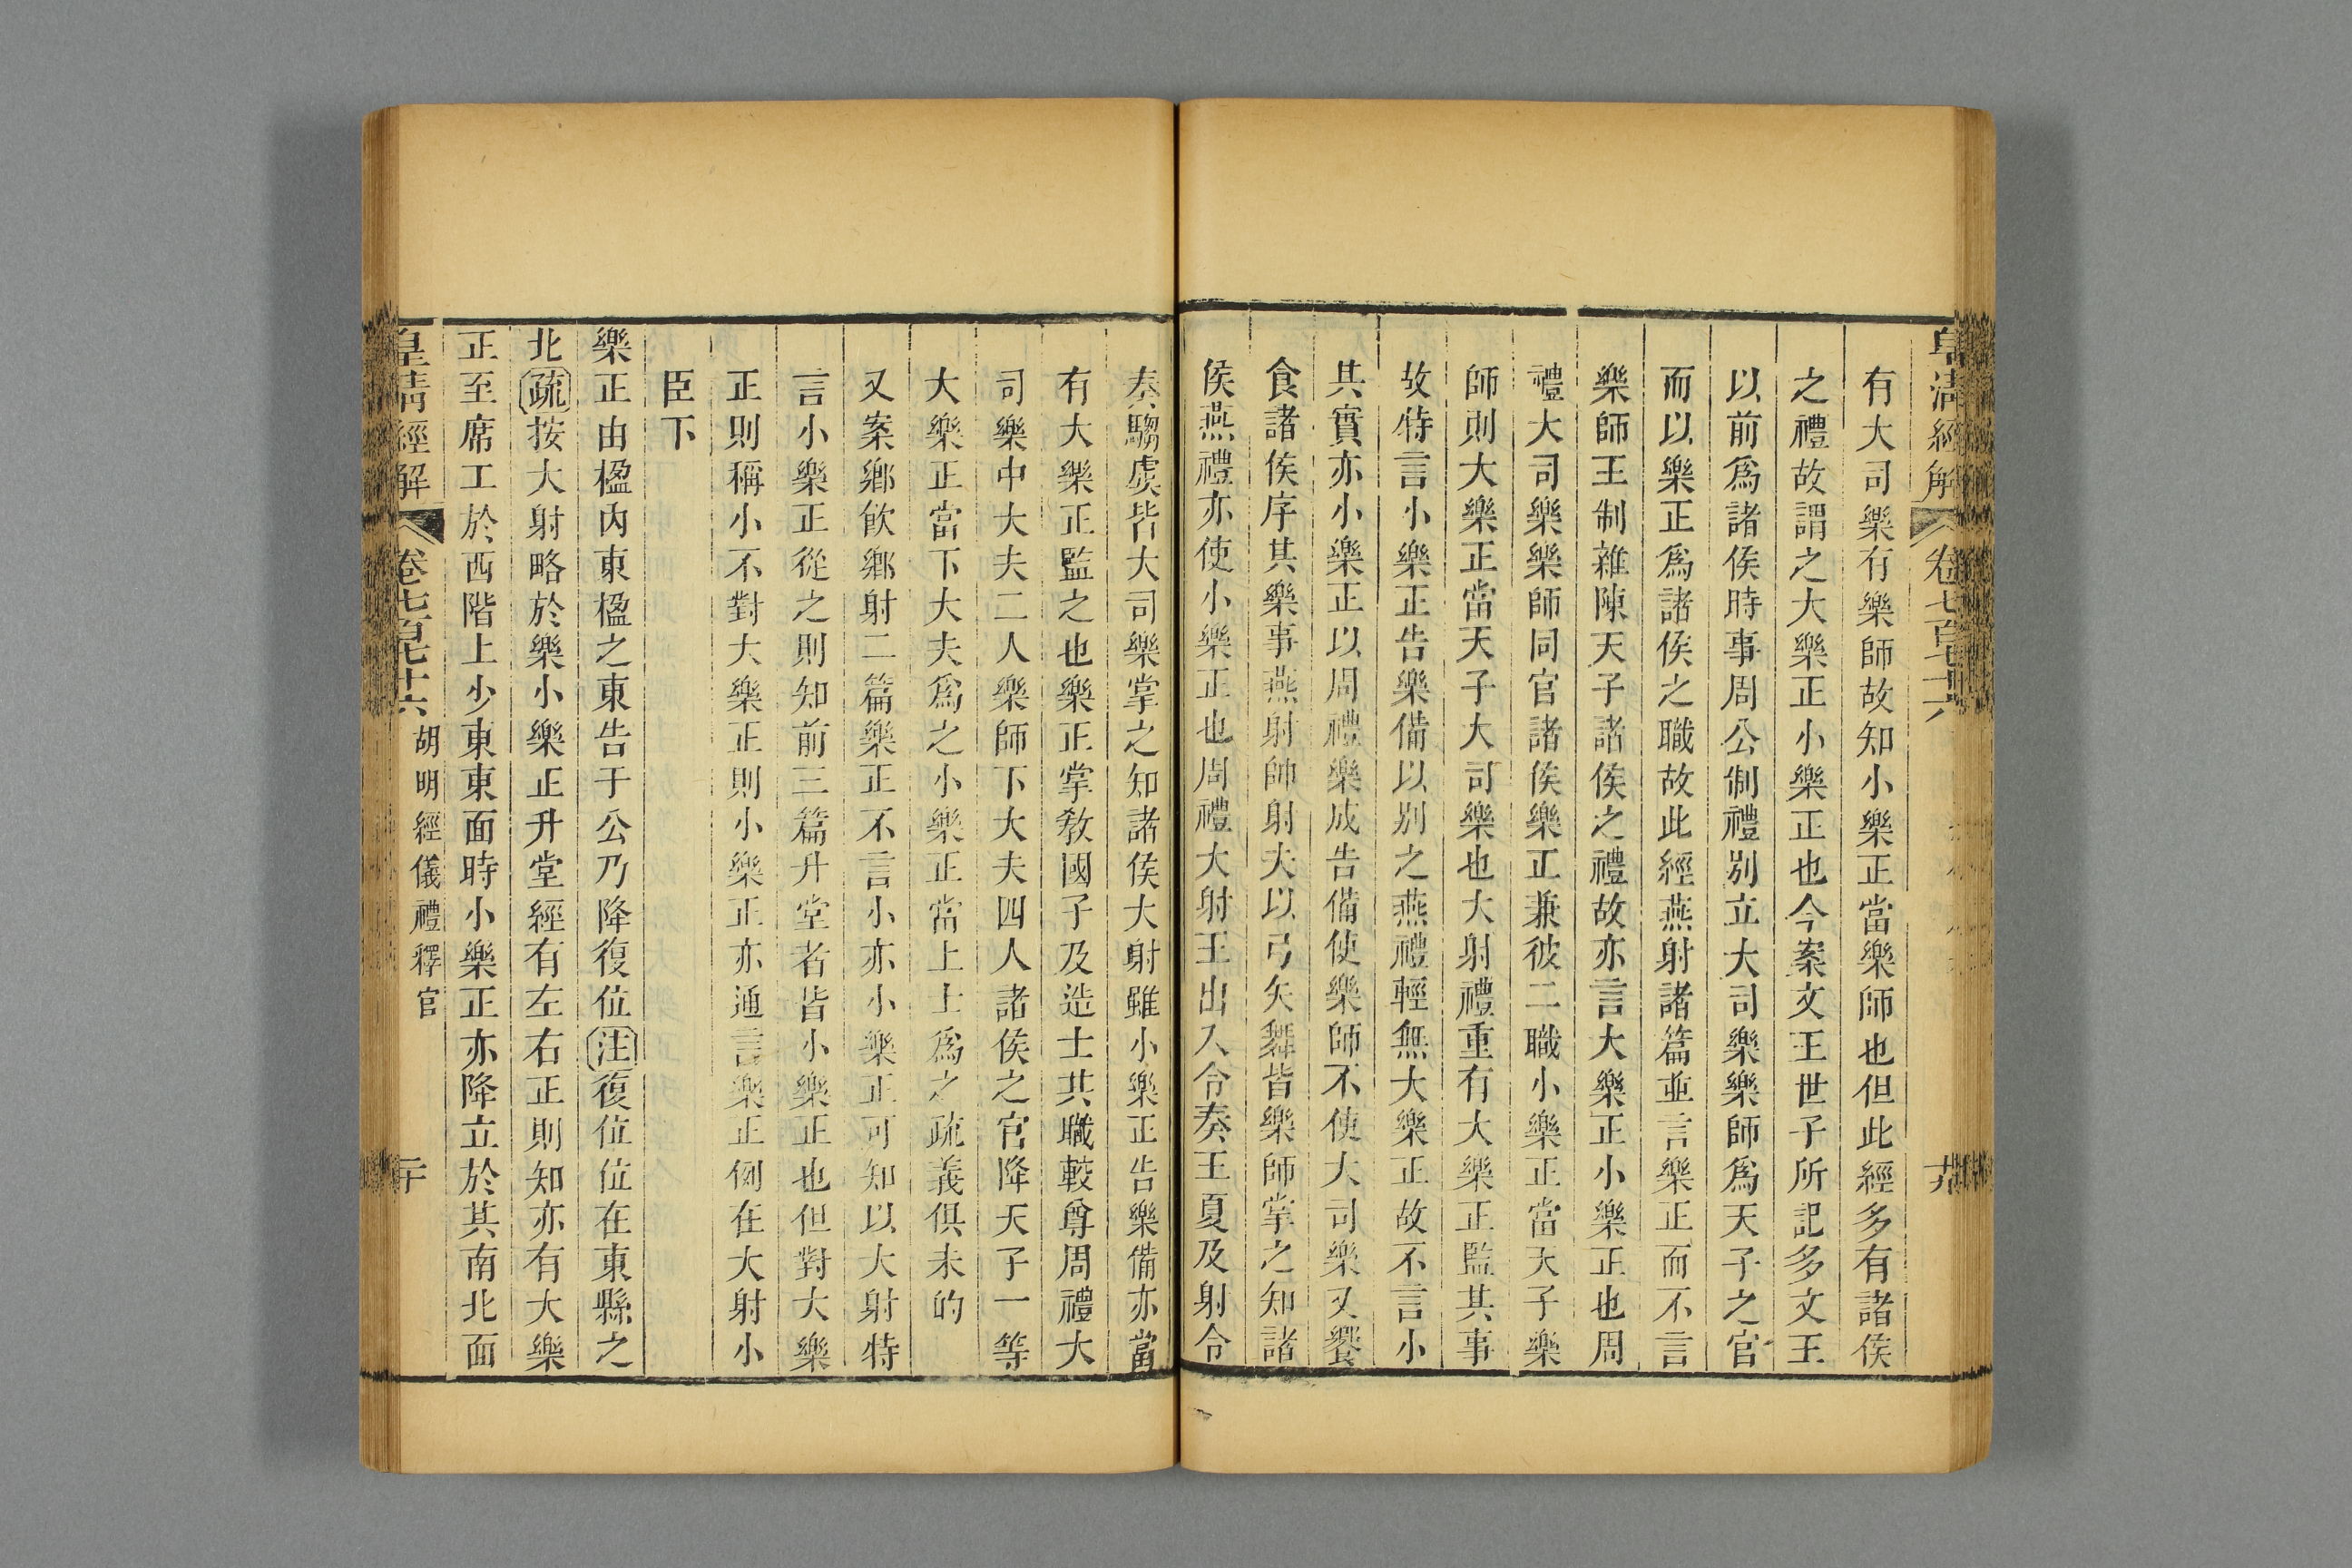 皇清經解 卷七百七十六 十九
有大司樂有樂師故知小樂正當樂師也但此經多有諸侯
之禮故謂之大樂正小樂正也今案文王世子所記多文王
以前爲諸侯時事周公制禮別立大司樂樂師爲天子之官
而以樂正爲諸侯之職故此經燕射諸篇並言樂正而不言
樂師王制雜陳天子諸侯之禮故亦言大樂正小樂正也周
禮大司樂樂師同官諸侯樂正兼彼二職小樂正當天子樂
師則大樂正當天子大司樂也大射禮重有大樂正監其事
故特言小樂正告樂備以別之燕禮輕無大樂正故不言小
其實亦小樂正以周禮樂成告備使樂師不使大司樂又饗
食諸侯序其樂事燕射帥射夫以弓矢舞皆樂師掌之知諸
侯燕禮亦使小樂正也周禮大射王出入令奏王夏及射令
奏騶虞皆大司樂掌之知諸侯大射雖小樂正告樂備亦當
有大樂正監之也樂正掌敎國子及造士其職較尊周禮大
司樂中大夫二人樂師下大夫四人諸侯之官降天子一等
大樂正當下大夫爲之小樂正當上士爲之疏義俱未的
又案鄉飮鄉射二篇樂正不言小亦小樂正可知以大射特
言小樂正從之則知前三篇升堂者皆小樂正也但對大樂
正則稱小不對大樂正則小樂正亦通言樂正例在大射小
臣下
樂正由楹內東楹之東告于公乃降復位注復位位在東縣之
北疏按大射略於樂小樂正升堂經有左右正則知亦有大樂
正至席工於西階上少東東面時小樂正亦降立於其南北面
皇清經解 卷七百七十六 胡明經儀禮釋官 二十